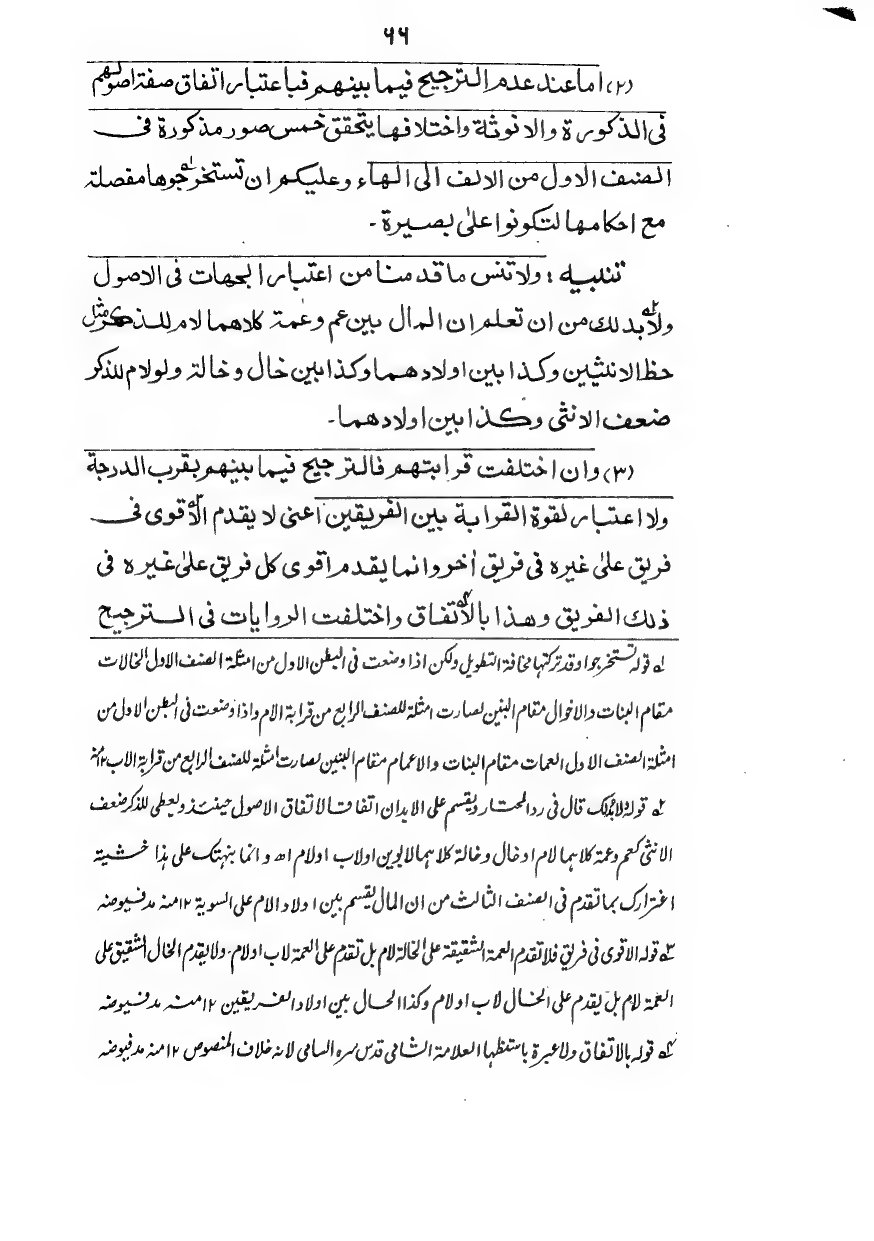 ٦٦
(٢) اما عند عدم الترجيح فيما بينهم فباعتبار اتفاق صفة اصولهم
فى الذكورة والانوثة واختلافها يتحقق خمس صور مذكورة فى
الصنف الاول من الالف الى الهاء وعليكم ان تستخرجوها مفصلة
مع احكامها لتكونوا على بصيرة ـ
تنبيه : ولا تنس ما قدمنا من اعتبار الجهات فى الاصول
ولابد لك من ان تعلم ان المال بين عم وعمة كلاهما لام للذكر مثل
حظ الانثيين وكذا بين اولادهما وكذا بين خال وخالة ولو لام للذكر
ضعف الانثى وكذا بين اولادهما ـ
(٣) وان اختلفت قرابتهم فالترجيح فيما بينهم بقرب الدرجة
ولا اعتبار لقوة القرابة بين الفريقين اعنى لا يقدم الاقوى فى
فريق على غيره فى فريق اخر وانما يقدم اقوى كل فريق على غيره فى
ذلك الفريق وهذا بالاتفاق واختلفت الروايات فى الترجيح
له قوله تستخرجوا وقد تركتها مخافة التطويل ولكن اذا وضعت فى البطن الاول من امثلة الصنف الاول الخالات
مقام البنات والاخوال مقام البنين لصارت امثلة للصنف الرابع من قرابة الام واذا وضعت فى البطن الاول من
امثلة الصنف الاول العمات مقام البنات والاعمام مقام البنين لصارت امثلة للصنف الرابع من قرابة الاب ١٢ منه
٢ه قوله ولابد لك قال فى رد المحتار ويقسم على الابدان اتفاقا لاتفاق الاصول حينئذ ويعطى للذكر ضعف
الانثى كعم وعمة كلاهما لام او خال وخالة كلاهما لابوين او لاب او لام اھ وانما نبهتك على هذا خشية
اغترارك بما تقدم فى الصنف الثالث من ان المال يقسم بين اولاد الام على السوية ١٢ منه مد فيوضه
٣ه قوله الاقوى فى فريق فلا تقدم العمة الشقيقة على الخالة لام بل تقدم على العمة لاب او لام ـ ولا يقدم الخال الشقيق على
العمة لام بل يقدم على الخال لاب او لام وكذا الحال بين اولاد الفريقين ١٢ منه مد فيوضه
٤ه قوله بالاتفاق ولا عبرة باستظهار العلامة الشامى قدس سره السامى لانه خلاف المنصوص ١٢ منه مد فيوضه